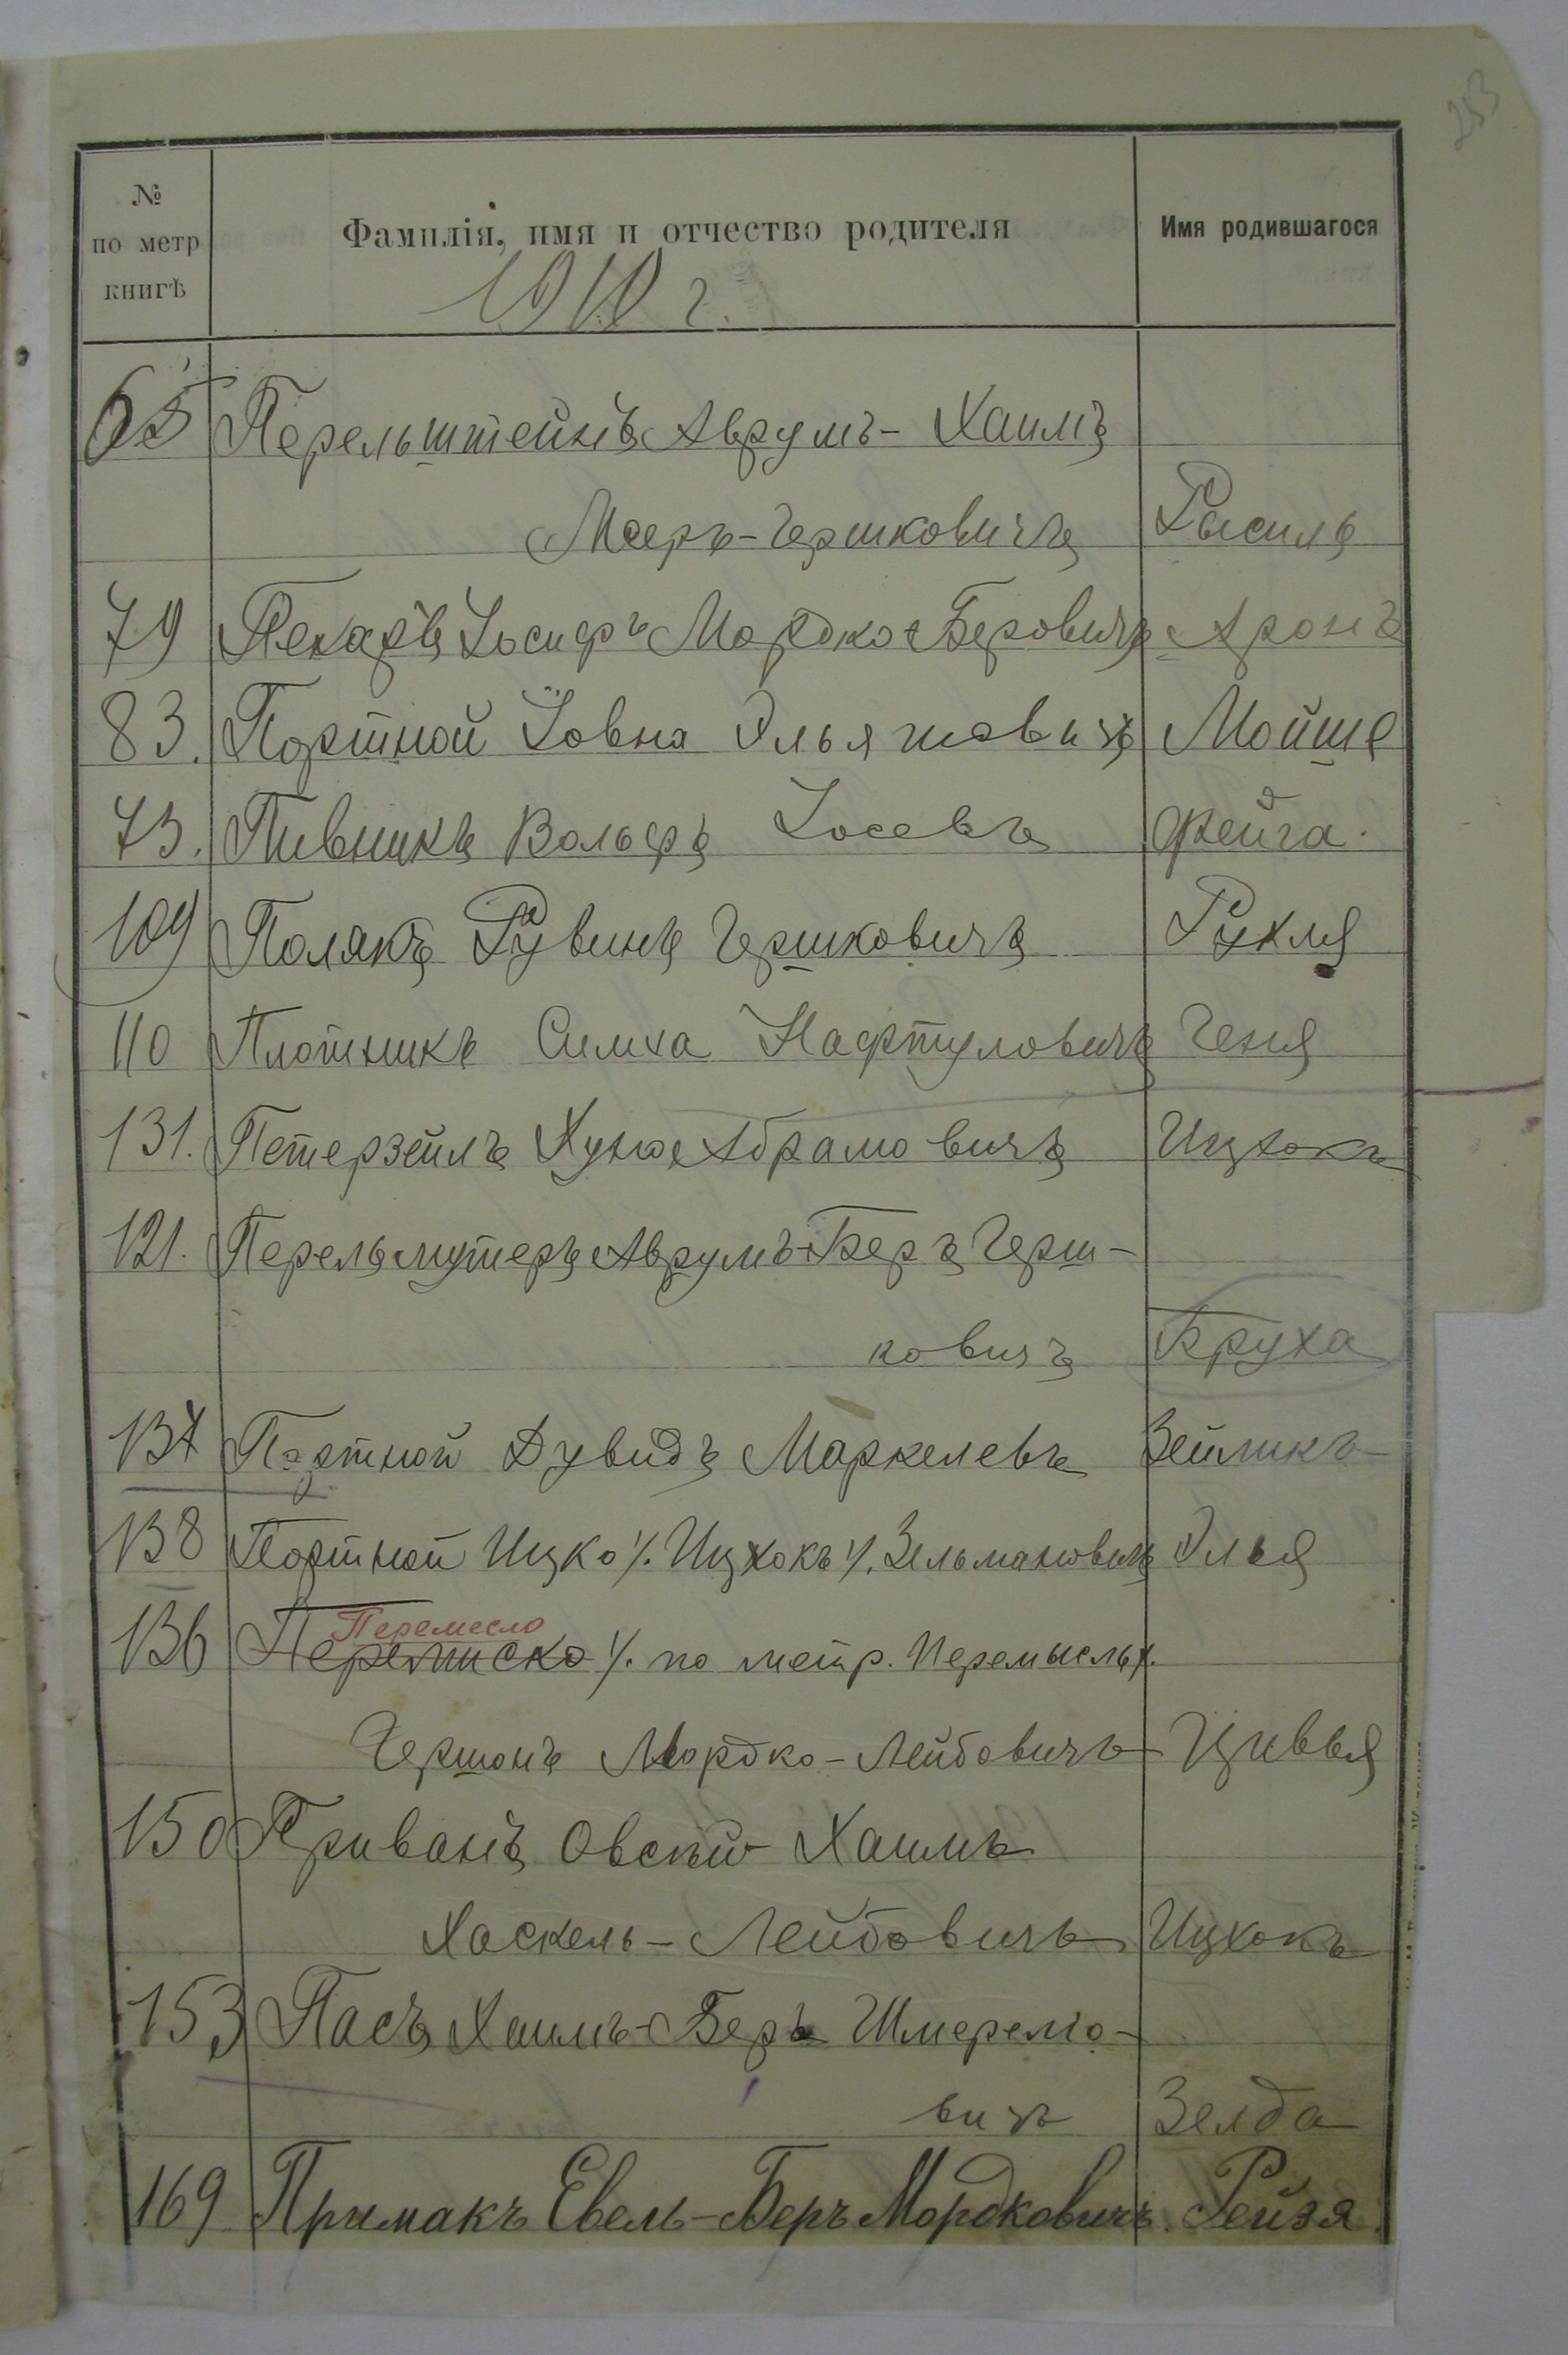 253
№ по метр книгѣ
Фамилія, имя и отчество родителя
Имя родившагося
1910 г.
65 Перельштейнъ Аврумъ-Хаимъ
Мееръ-Гершковичъ Рысиль
79 Пекарь Іосифъ Мордко-Беровичъ Аронъ
83. Портной Іовна Эльяшовичъ Мойше
73. Пивникъ Вольфъ Іосевъ Фейга.
109 Полякъ Рувинъ Гершковичъ Рухля
110 Плотникъ Симха Нафтуловичъ Геня
131. Петерзейлъ Хуна Абрамовичъ Ицхокъ
121. Перельмутеръ Аврумъ-Беръ Герш-
ковичъ Бруха
137 Портной Дувидъ Маркелевъ Зейликъ
138 Портной Ицко ٪. Ицхокъ ٪. Зельмановичъ Элья
Перемесло
136 Перемиско ٪. по метр. Перемысль ٪.
Гершонъ Мордко-Лейбовичъ Цивья
150 Приванъ Овский Хаимъ
Хаскель-Лейбовичъ Ицхокъ
153 Пасъ Хаимъ-Беръ Шмереліо-
вичъ Зелда
169 Примакъ Евель-Беръ Мордковичъ. Рейзя.